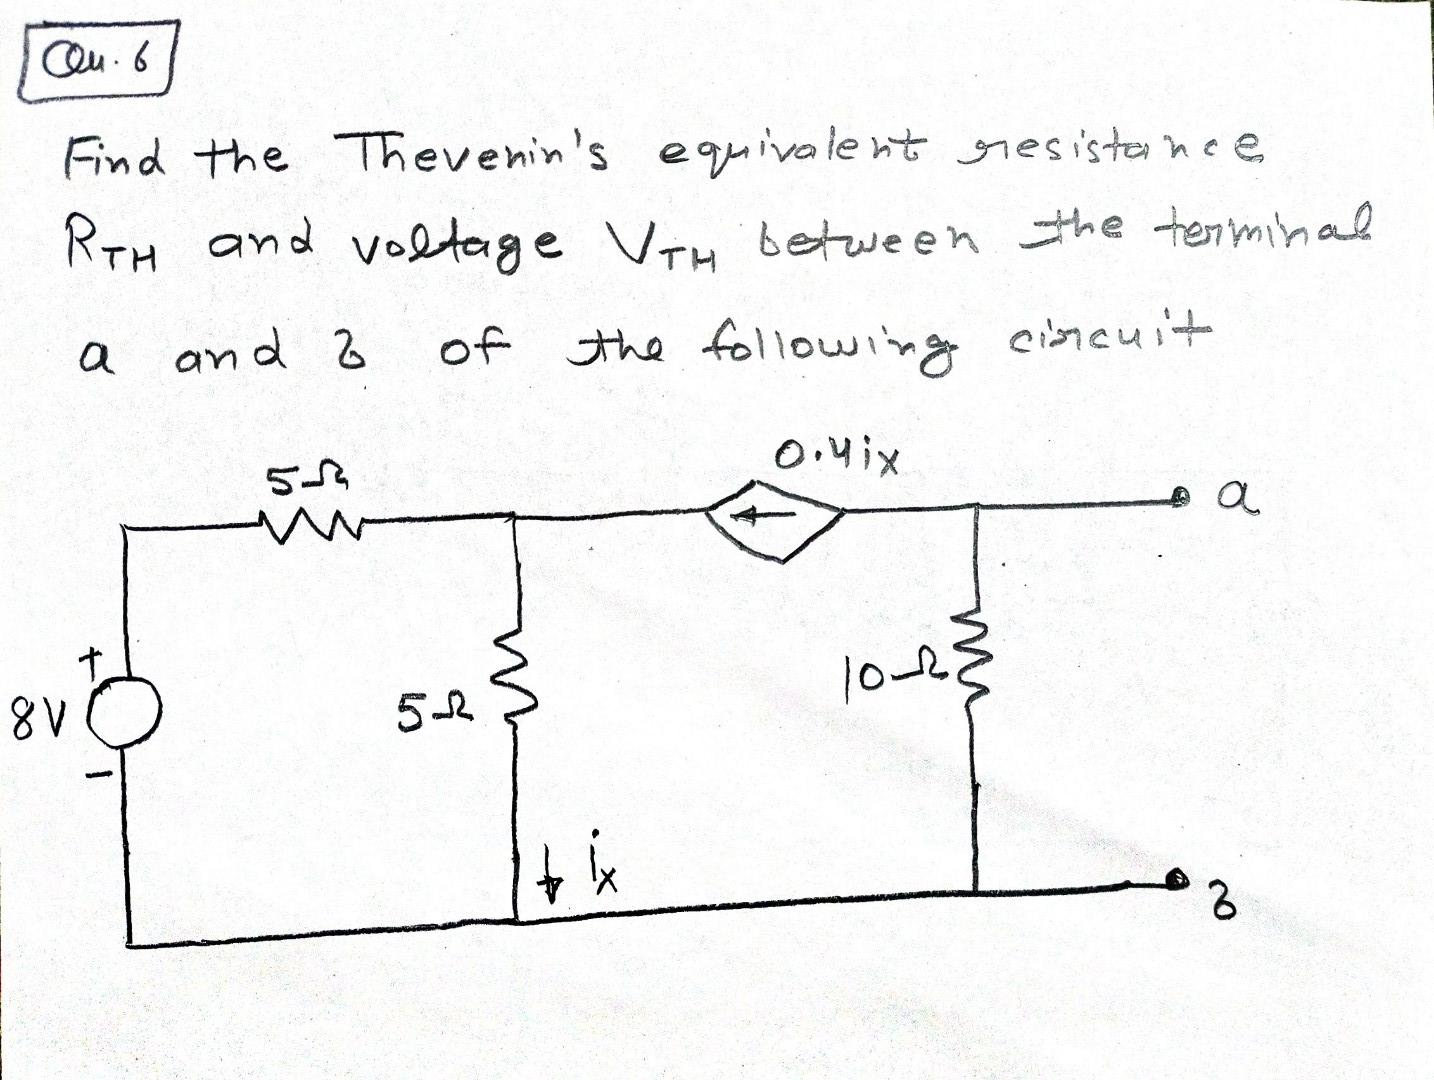 Qu. 6
Find the Thevenin's equivalent resistance
RTH and voltage VTH between the terminal
a and b of the following circuit
0.4ix
5Ω
a
+
8V
5Ω
10Ω
-
ix
b